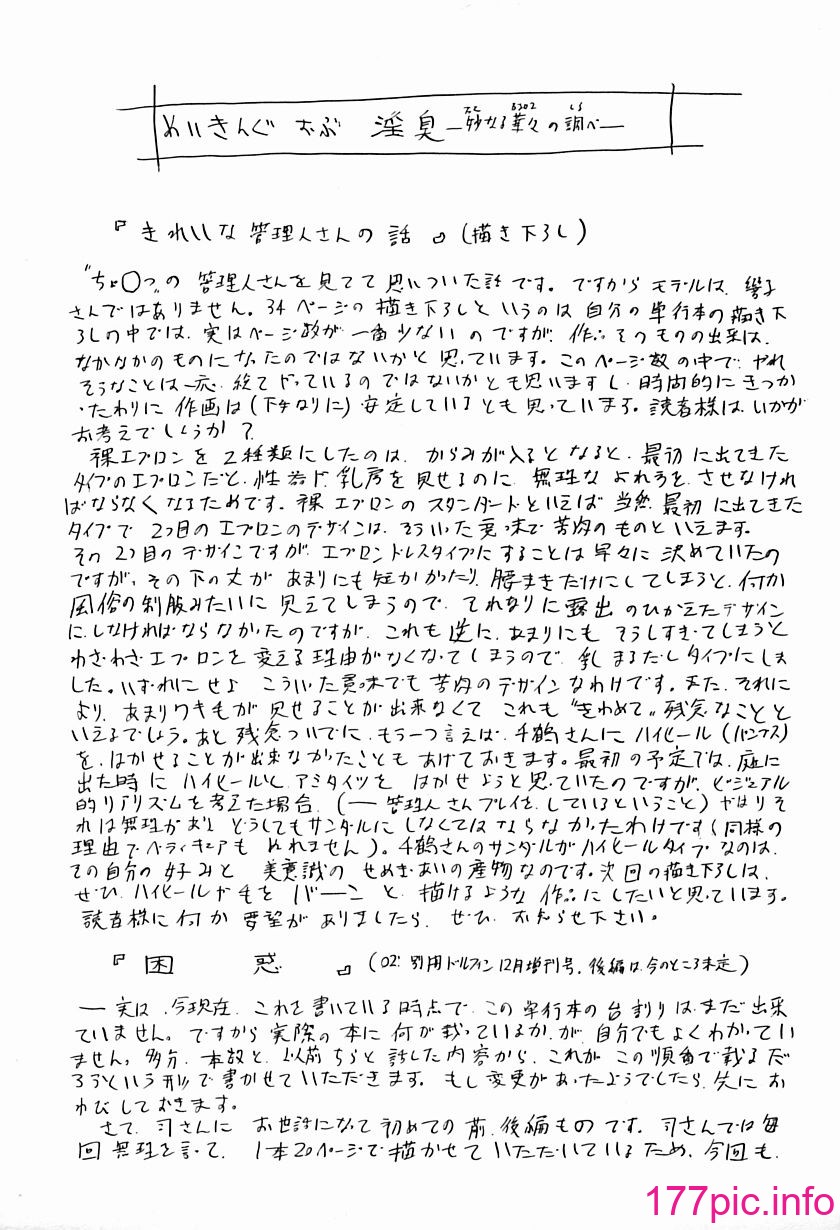 めいきんぐ おぶ 淫臭 ―妙なる華々の調べ―
『きれいな管理人さんの話』(描き下ろし)
"ちょ〇っ"の管理人さんを見てて思いついた話です。ですからモデルは、響子
さんではありません。34ページの描き下ろしというのは自分の単行本の描き下
ろしの中では、実はページ数が一番少ないのですが、作品そのものの出来は、
なかなかのものになったのではないかと思っています。このページ数の中で、やれ
そうなことは一応、総てやっているのではないかとも思いますし、時間的にきつか
ったわりに作画は(下手なりに)安定しているとも思っています。読者様はいかが
お考えでしょうか?
裸エプロンを2種類にしたのは、からみが入るとなると、最初に出てきた
タイプのエプロンだと、性器や、乳房を見せるのに、無理なよれ方をさせなけれ
ばならなくなるためです。裸エプロンのスタンダードといえば当然、最初に出てきた
タイプで2つ目のエプロンのデザインは、そういった意味で苦肉のものといえます。
その2つ目のデザインですが、エプロンドレスタイプにすることは早々に決めていたの
ですが、その下の丈があまりにも短かかったり、腰まきだけにしてしまうと、何か
風俗の制服みたいに見えてしまうので、それなりに露出のひかえたデザイン
にしなければならなかったのですが、これも逆に、あまりにもそうしすぎてしまうと
わざわざエプロンを変える理由がなくなってしまうので、乳まるだしタイプにしま
した。いずれにせよ こういった意味でも苦肉のデザインなわけです。また、それに
より、あまりワキ毛が見せることが出来なくて これも"きわめて"残念なことと
いえるでしょう。あと残念ついでに、もう一つ言えば、千鶴さんにハイヒール(パンプス)
を、はかせることが出来なかったこともあげておきます。最初の予定では、庭に
出た時にハイヒールと、アミタイツをはかせようと思っていたのですが、ビジュアル
的リアリズムを考えた場合、(―管理人さんプレイを、しているということ)やはりそ
れは無理があり、どうしてもサンダルにしなくてはならなかったわけです(同様の
理由でペディキュアもぬれません)。千鶴さんのサンダルがハイヒールタイプなのは、
その自分の好みと 美意識のせめぎあいの産物なのです。次回の描き下ろしは、
ぜひ、ハイヒールや毛をバーンと、描けるような作品にしたいと思っています。
読者様に何か要望がありましたら、ぜひ、お知らせ下さい。
『困 惑』(02' 別冊ドルフィン12月増刊号、後編は今のところ未定)
― 実は、今現在、これを書いている時点で、この単行本の台割りは、まだ出来
ていません。ですから実際の本に何が載っているか、が、自分でもよくわかってい
ません。多分、本数と、以前ちらと話した内容から、これが、この順番で載るだ
ろうという形で書かせていただきます。もし変更があったようでしたら、先にお
わびしておきます。
さて、司さんに お世話になって初めての前、後編ものです。司さんでは毎
回無理を言って、1本20ページで描かせていただいているため、今回も、
177pic.info